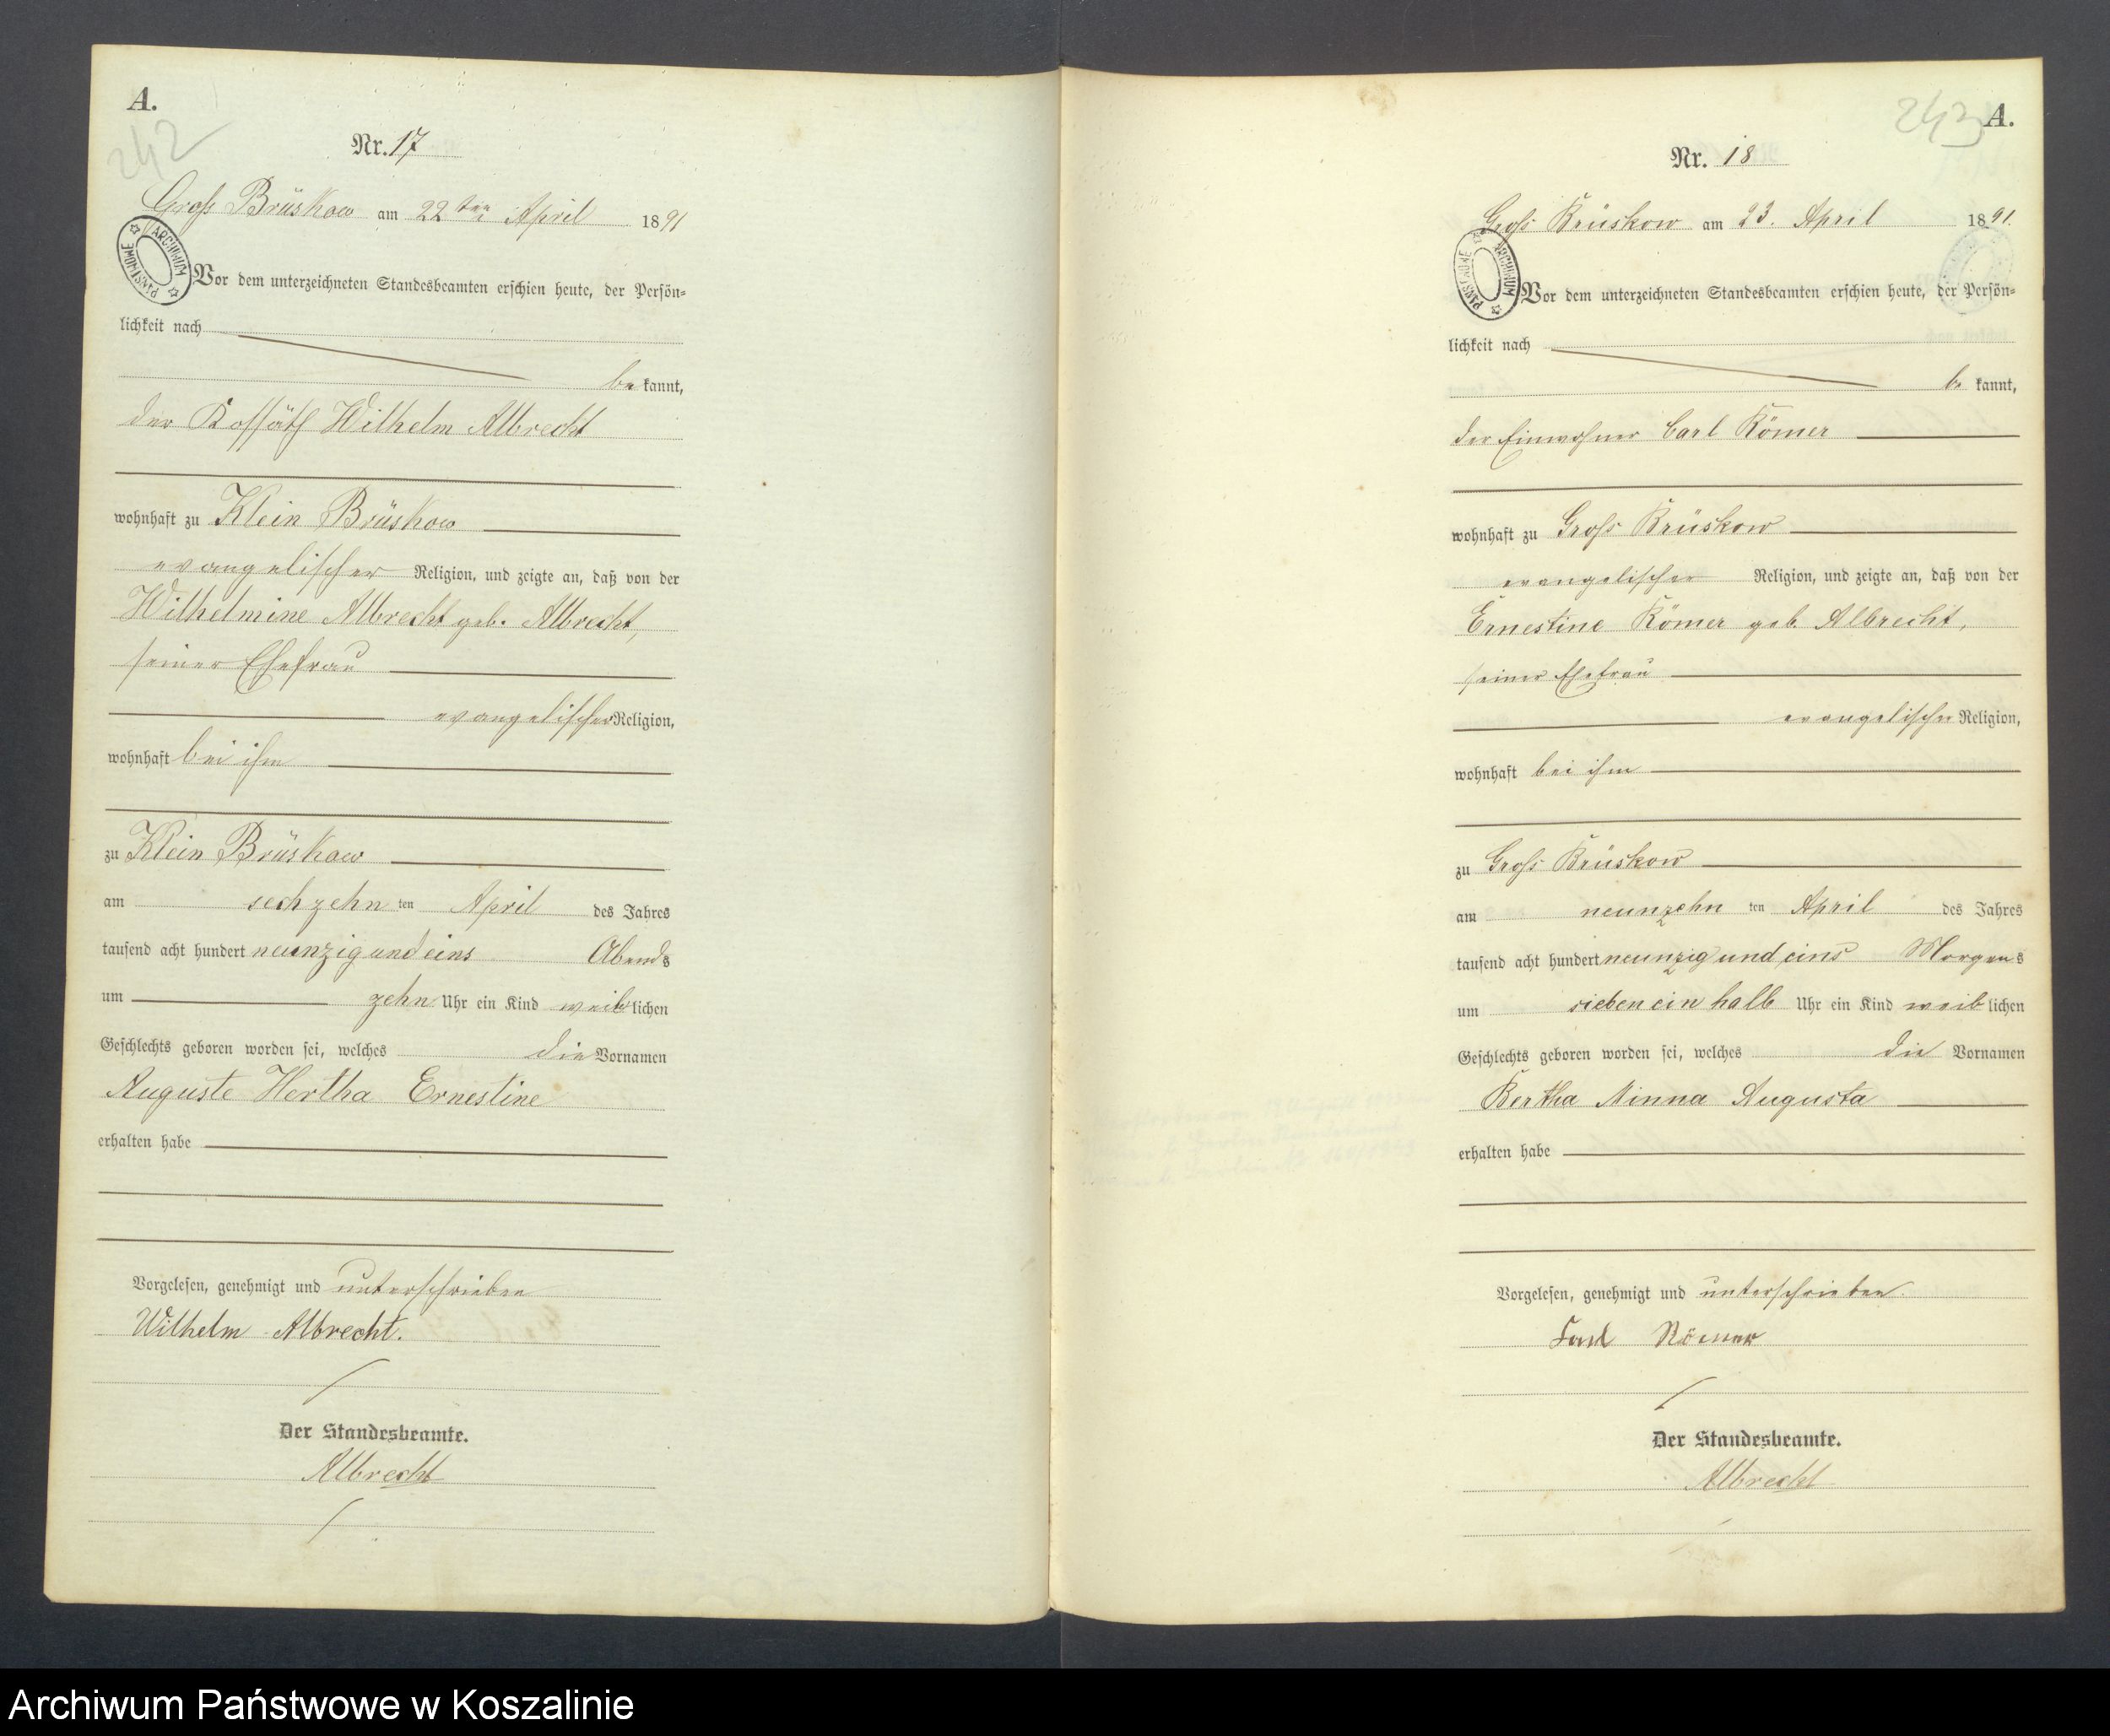 A.
242
Nr. 17
Groß Brüskow am 22ten April 1891
ARCHIWUM PAŃSTWOWE
Vor dem unterzeichneten Standesbeamten erschien heute, der Persön-
lichkeit nach
be kannt,
der Kossäth Wilhelm Albrecht
wohnhaft zu Klein Brüskow
evangelischer Religion, und zeigte an, daß von der
Wilhelmine Albrecht geb. Albrecht,
seiner Ehefrau
evangelischer Religion,
wohnhaft bei ihm
zu Klein Brüskow
am sechzehn ten April des Jahres
tausend acht hundert neunzig und eins Abends
um zehn Uhr ein Kind weiblichen
Geschlechts geboren worden sei, welches die Vornamen
Auguste Hertha Ernestine
erhalten habe
Vorgelesen, genehmigt und unterschrieben
Wilhelm Albrecht.
Der Standesbeamte.
Albrecht
243
A.
Nr. 18
Groß Brüskow am 23. April 1891.
ARCHIWUM PAŃSTWOWE
Vor dem unterzeichneten Standesbeamten erschien heute, der Persön-
lichkeit nach
be kannt,
der Einwohner Carl Römer
wohnhaft zu Groß Brüskow
evangelischer Religion, und zeigte an, daß von der
Ernestine Römer geb. Albrecht,
seiner Ehefrau
evangelischer Religion,
wohnhaft bei ihm
zu Groß Brüskow
am neunzehn ten April des Jahres
tausend acht hundert neunzig und eins Morgens
um sieben ein halb Uhr ein Kind weiblichen
Geschlechts geboren worden sei, welches die Vornamen
Bertha Minna Augusta
erhalten habe
Vorgelesen, genehmigt und unterschrieben.
Carl Römer
Der Standesbeamte.
Albrecht
Archiwum Państwowe w Koszalinie